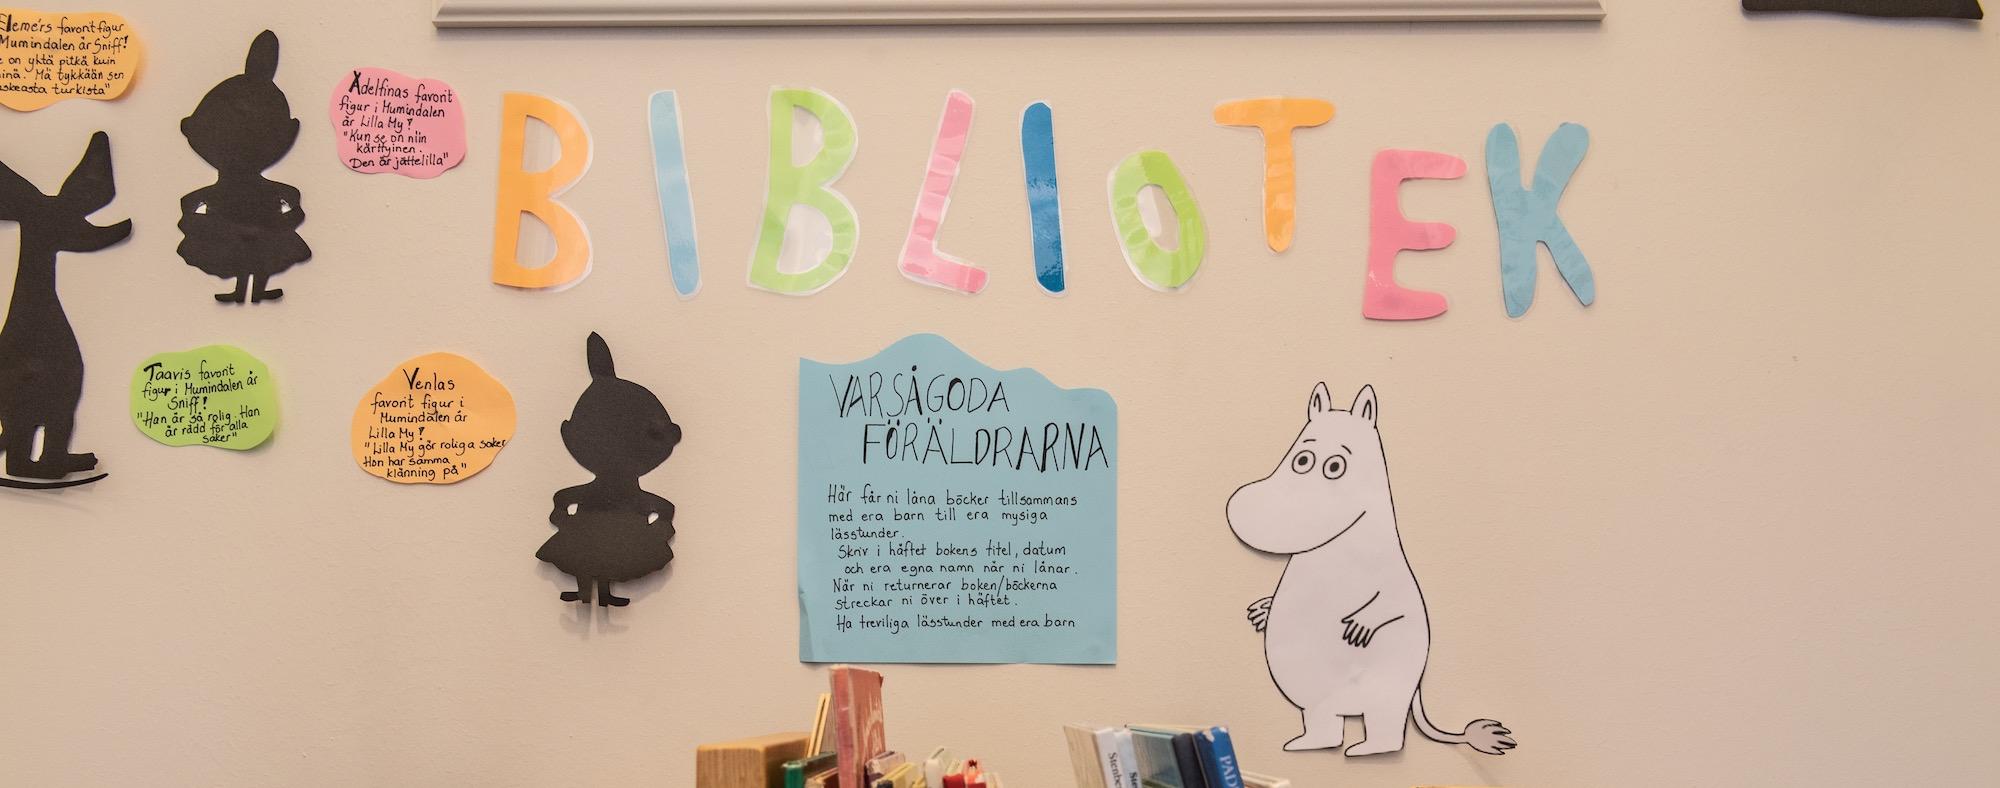 Elemers favorit figur
Mumindalen är Sniff!
on yhtä pitkä kuin
minä. Mä tykkään sen
turkista"
Adelfinas favorit
figur i Mumindalen
är Lilla My!
"Kun se on niin
kärttyinen.
Den är jättelilla"
BIBLIOTEK
Taavis favorit
figur i Mumindalen är
Sniff!
"Han är så rolig. Han
är rädd för alla
saker"
Venlas
favorit figur i
Mumindalen är
Lilla My!
"Lilla My gör roliga saker
Hon har samma
klänning på"
VARSÅGODA
FÖRÄLDRARNA
Här får ni låna böcker tillsammans
med era barn till era mysiga
lässtunder.
Skriv i häftet bokens titel, datum
och era egna namn när ni lånar.
När ni returnerar boken/böckerna
streckar ni över i häftet.
Ha treviliga lässtunder med era barn
Stenbe
Ste
PAD